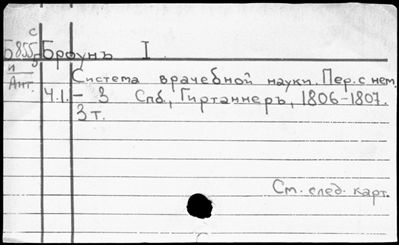 с
Б855 Броунъ I.
и
Ант. Система врачебной науки. Пер. с нем.
Ч.1. - 3 Спб., Гиртаннеръ, 1806-1807.
3 т.
См. след. карт.